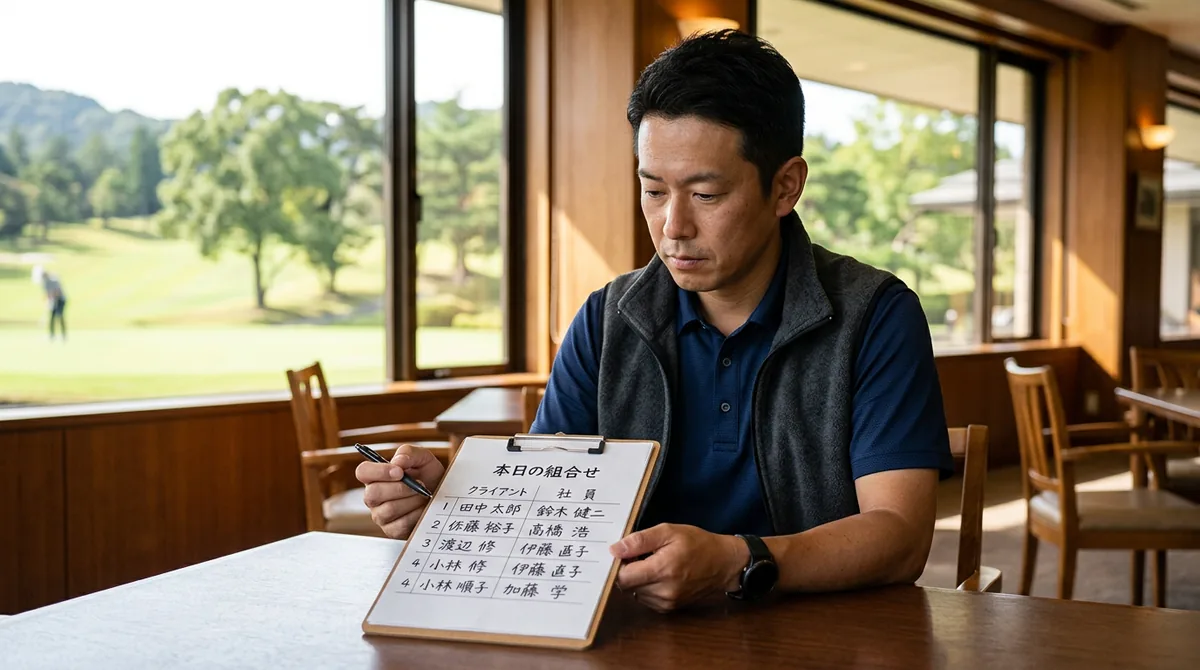 本日の組合せ
クライアント 社員
1 田中 太郎 鈴木 健二
2 佐藤 裕子 高橋 浩
3 渡辺 修 伊藤 直子
4 小林 修 伊藤 直子
4 小林 順子 加藤 学